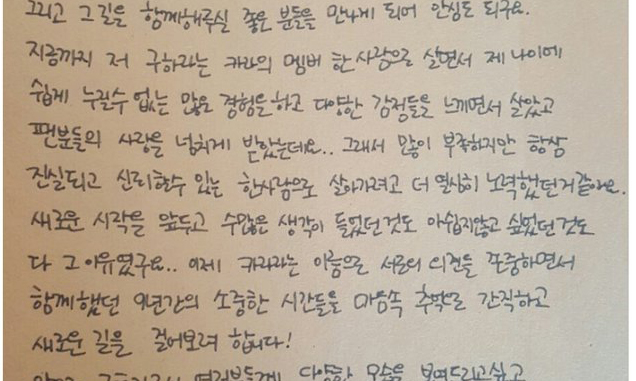 그리고 그 길을 함께해주실 좋은 분들을 만나게 되어 안심도 되구요.
지금까지 저 구하라는 카라의 멤버 한 사람으로 살면서 제 나이에
쉽게 누릴수 없는 많은 경험을 하고 다양한 감정들을 느끼면서 살았고
팬분들의 사랑을 넘치게 받았는데요.. 그래서 많이 부족하지만 항상
진실되고 신뢰할수 있는 한사람으로 살아가려고 더 열심히 노력했던거 같아요.
새로운 시작을 앞두고 수많은 생각이 들었던 것도 아쉽지않고 싶었던 것도
다 그 이유였구요.. 이제 카라라는 이름으로 서로의 의견을 존중하면서
함께 했던 9년간의 소중한 시간들을 마음속 추억으로 간직하고
새로운 길을 걸어보려 합니다!
여러분들께 다양한 모습을 보여드리고싶고